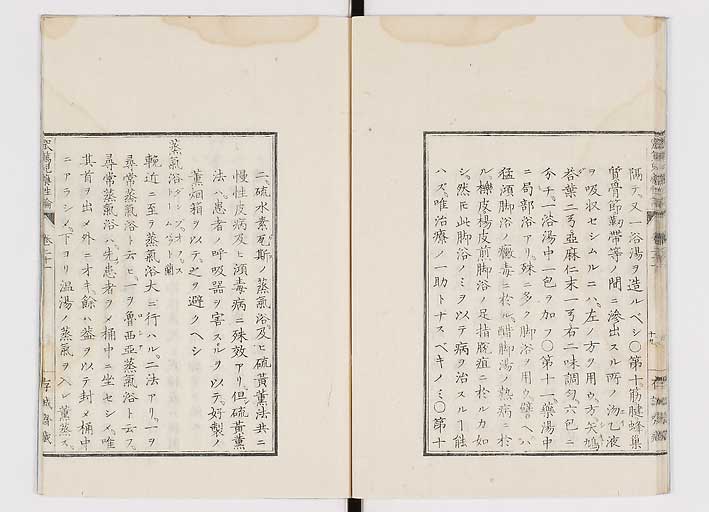 隔テ又一浴湯ヲ造ルベシ○第十筋腱蜂巢
質骨節靭帶等ノ間ニ滲出スル所ノ汋乙液
ヲ吸収セシムルニハ左ノ方ヲ用ウ方矢鳩
荅葉二弓亞麻仁末一弓右二味調匀六包ニ
分チ浴湯中一包ヲ加フ○第十一藥湯中
ニ局部浴アリ殊ニ多ク脚浴ヲ用ウ譬ヘバ
猛湏脚浴ノ黴毒ニ於ル醋脚湯ノ熱病ニ於
ル櫟皮楊皮煎脚浴ノ足指腐疽ニ於ルカ如
シ然モ此脚浴ノミヲ以テ病ヲ治スルー能
ハズ唯治療ノ一助トナスベキノミ○第十
二硫水素瓦斯ノ蒸氣浴及ヒ硫黃薰法共ニ
慢性皮病及ヒ湏毒病ニ殊效アリ但硫黃薰
法ハ患者ノ呼吸器ヲ害スルヲ以テ好製ノ
薰烟箱ヲ以テ之ヲ避クヘシ
蒸氣浴
輓近ニ至ラ蒸氣浴大ニ行ハル二法アリ一ヲ
尋常蒸氣浴ト云ヒ一ヲ魯西亞蒸氣浴ト云フ
尋常蒸氣浴ハ先患者ヲ〆桶中ニ坐セシメ唯
其首ヲ出〆外ニオキ餘ハ葢ヲ以テ封〆桶中
ニアラシメ下ヨリ温湯ノ蒸氣ヲ入レ薰蒸ス